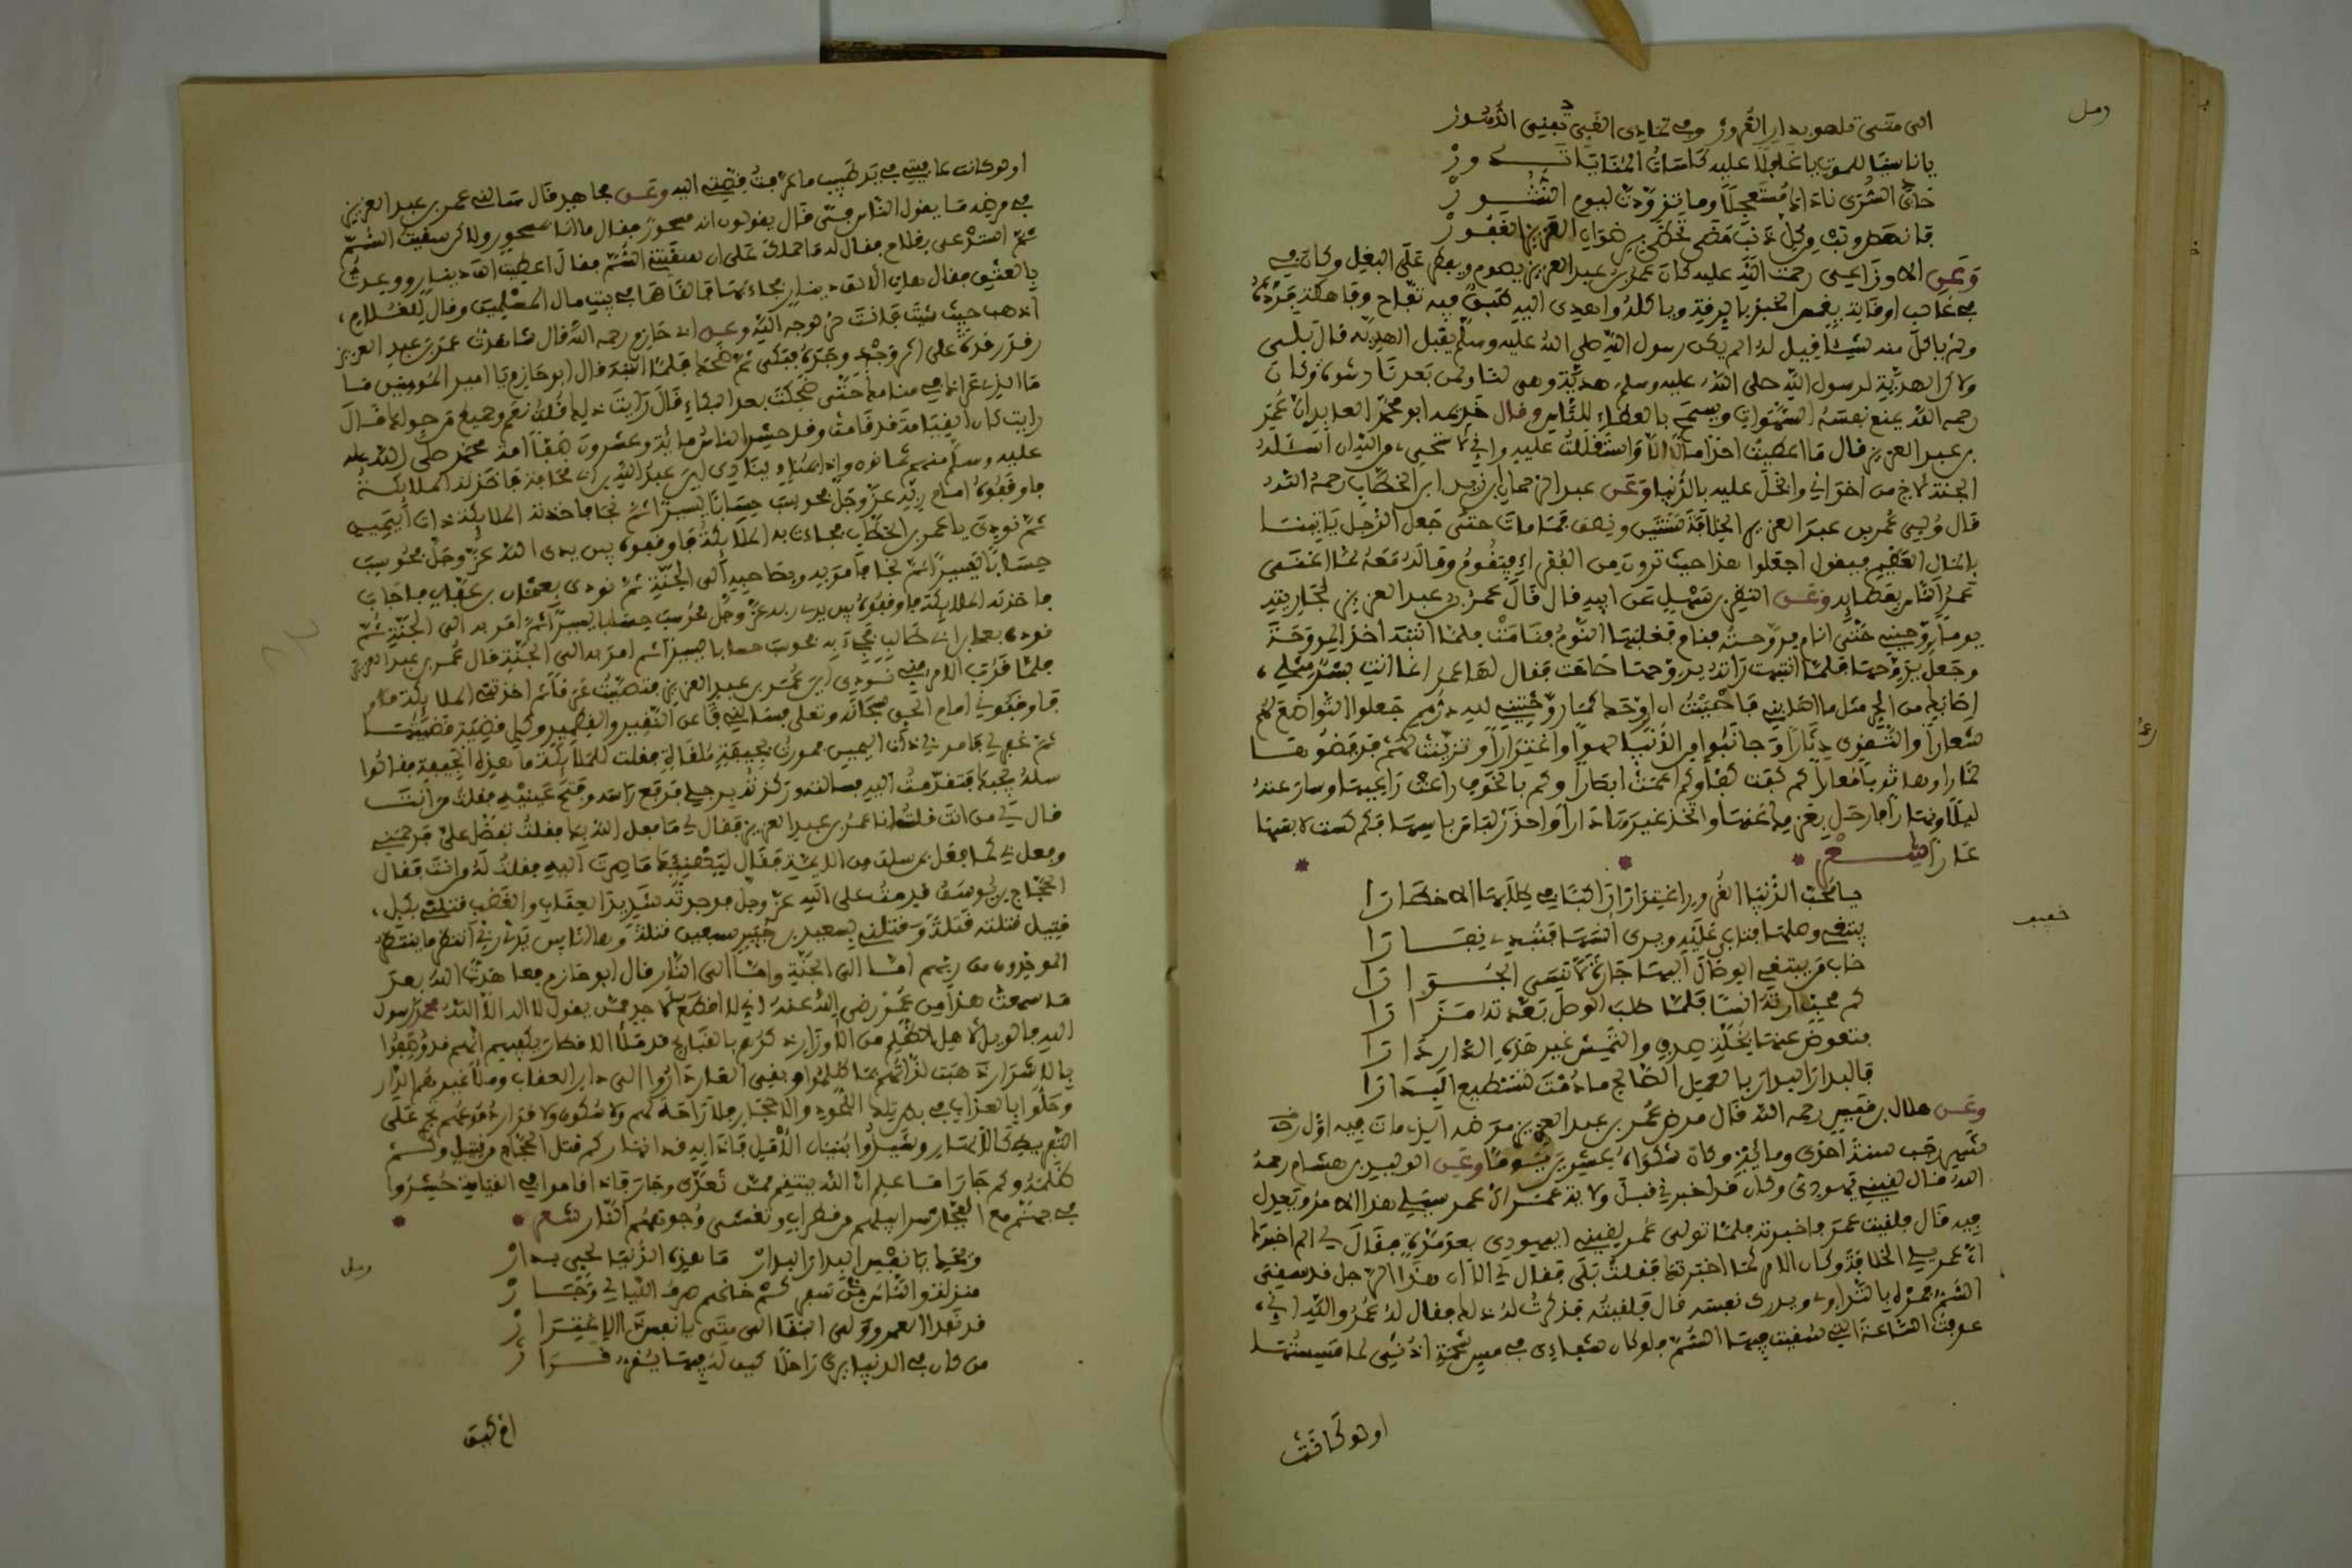 رمل
الى متى تلهو بدار الغرور وفي تمادي الغي تفني الدهور
يا ناسيا للموت يا غافلا عليه كاسات المنايا تدور
حان السرى ناد انما مستعجلا وما تزودت ليوم النشور
فانهض وتب وكل ذنب مضى تحظى برضوان العزيز الغفور
وعن الاوزاعي رحمت الله عليه كان عمر بن عبد العزيز يصوم ويفطر على البقل وكان في
في غالب اوقاته يغمس الخبز بالمرقة وياكله واهدى اليه طبق فيه تفاح وفاكهة فرده
ولم ياكل منه شيئا فقيل له الم يكن رسول الله صلى الله عليه وسلم يقبل الهدية قال بلى
ولاكن الهدية لرسول الله صلى الله عليه وسلم هدية وهي لنا ولمن بعدنا رشوة وكان
رحمه الله يمنع نفسه الشهوات ويسمح بالعطاء للناس وقال خزيمة ابو محمد العابد ان عمر
بن عبد العزيز قال ما اعطيت احدا مالا الا وانا استقللت عليه واني لاستحيي من الله ان اسئله
الجنة لاخ من اخواني وابخل عليه بالدنيا وعن عبد الرحمان بن زيد ابن الخطاب رحمه الله
قال ولي عمر بن عبد العزيز الخلافة سنتين ونصف فما مات حتى جعل الرجل ياتينا
بالمال العظيم فيقول اجعلوا هذا حيث ترون من الفقراء فيقوم وماله معه لما اغنى
عمر الناس بعطائه وعن النضر بن سهيل عن ابيه قال قال عمر بن عبد العزيز لجاريته
يوما روحيني حتى انام فروحته فنام وغلبها النوم فنامت فلما انتبه اخذ المروحة
وجعل يروحها فلما انتبهت راته يروحها صاحت فقال لها عمر انما انت بشر مثلي
اصابك من الحر مثل ما اصابني فاحببت ان اروحك كما روحتني
شعارا والتقوى دثارا وجانبوا من الدنيا
ليلا ونهارا يا راحل
عارا شعر
يا محب الدنيا الغرور اغترارا راكبا في طلابها الاخطارا
يبتغي وصلها فتابى عليه ويرى انسها فتبدي نفارا
خاب من يبتغي الوصال اليها جارة لا تسي الجوارا
كم محب ارته انسا فلما طلب الوصل بعد ته مزارا
فتعوض عنها بخلة صدق والتمس غير هذه الدار دارا
فالبدار البدار بالعمل الصالح ما دمت تستطيع البدارا
وعن هلال بن قعيب رحمه الله قال مرض عمر بن عبد العزيز مرضه الذي مات فيه اول رجب
سنة احدى ومائة وكان شكواه عشرين يوما وعن الوليد بن هشام رحمه
الله قال لقيني يهودي وكان قد اخبرني قبل ولاية عمر ان عمر سيلي هذا الامر ويعدل
فيه قال فلقيت عمر فاخبرته فلما تولى عمر لقيني اليهودي بعد مدة فقال لي الم اخبرك
ان عمر يلي الخلافة وكان الامر كما اخبرتك فقلت بلى فقال لي الان هذا الرجل قد سقي
السم فمره بالتداوي ويدرك نفسه قال فلقيته فذكرت له ذلك فقال له عمر والله اني
عرفت الساعة التي سقيت فيها السم فلو كان شفاءي في مس شحمة اذني لما مسستها
او لو كانت
خفيف
او لو كانت عافيتي في طيب ما قربت قضيته اليه وعن مجاهد قال سالني عمر بن عبد العزيز
في مرضه ما يقول الناس في قال يقولون انه مسحور فقال ما انا بمسحور ولاكن سقيت السم
ثم استدعى بغلام فقال له ما حملك على ان سقيتني السم فقال اعطيت الف دينار ووعدت
بالعتق فقال هات الالف دينار فجاء بها فالقاها في بيت مال المسلمين وقال للغلام
اذهب حيث شئت فانت حر لوجه الله وعن ابي حازم رحمه الله قال شاهدت عمر بن عبد العزيز
رقد رقدة على اثر وجد وجده فبكى ثم ضحك فلما انتبه قال ابو حازم يا امير المومنين ما
ما الذي عراك في منامك حتى ضحكت بعد البكاء قال رايت ذلك قلت نعم وجميع من حولك قال
رايت كان القيامة قد قامت وقد حشر الناس مائة وعشرون صفا امة محمد صلى الله عليه
عليه وسلم منهم ثمانون واذا مناد ينادي اين عبد الله بن ابي قحافة فاخذته الملائكة
فاوقفوه امام ربه عز وجل فحوسب حسابا يسيرا ثم نجا فاخذته الملائكة ذات اليمين
ثم نودي يا عمر بن الخطاب فجاءت به الملائكة فاوقفوه بين يدي الله عز وجل فحوسب
حسابا يسيرا ثم نجا فامر به وبصاحبه الى الجنة ثم نودي بعثمان بن عفان فاجاب
فاخذته الملائكة فاوقفوه بين يدي ربه عز وجل فحوسب حسابا يسيرا ثم امر به الى الجنة ثم
نودي بعلي بن ابي طالب فجاء به فحوسب حسابا يسيرا ثم امر به الى الجنة قال عمر بن عبد العزيز
فلما قرب الامر مني نودي اين عمر بن عبد العزيز فتصببت عرقا ثم اخذتني الملائكة
فاوقفوني امام الحق سبحانه وتعلى فسالني عن النقير والقطمير وكل قضية قضيتها
ثم غفر لي فامر بي ذات اليمين فمررت بجيفة ملقاة فقلت للملائكة ما هذه الجيفة فقالوا
سله يجبك فتقدمت اليه فسالته وركزته برجلي فرفع راسه وفتح عينيه فقلت من انت
قال لي من انت قلت انا عمر بن عبد العزيز فقال لي ما فعل الله بك فقلت تفضل علي فرحمني
وفعل بي كما فعل بمن سلف من الايمة فقال ليهنيك ما صرت اليه فقلت له من انت فقال
الحجاج بن يوسف قدمت على الله عز وجل فوجدته شديد العقاب والغضب فقتلني بكل
قتيل قتلته قتلة وقتلني بسعيد بن جبير سبعين قتلة وها انا بين يدي ربي انتظر ما ينتظر
الموحدون من ربهم اما الى الجنة واما الى النار قال ابو حازم فعاهدت الله بعد
ما سمعت هذا من عمر رضي الله عنه اني لا اقطع لاحد ممن يقول لا اله الا الله محمد رسول
الله فالويل لاهل الظلم من
بالاشرار ذهبت لذاتهم بما ظلموا وبقي العار داروا الى دار العقاب وملك غيرهم الدار
وخلوا بالعذاب في بطون تلك اللحود والاحجار فلا راحة لهم ولا سكون ولا قرار
ظلمه وكم جار اما علم ان الله ينتقم ممن تعدى وجار فاذا قاموا في القيامة حشروا
في جهنم مع الفجار سرابيلهم من قطران وتغشى وجوههم النار شعر
ويحك يا نفس البدار البدار ما هذه الدنيا لحي بدار
منزلة والناس سفر خانهم صرف الليالي وجار
قد نفد العمر وولى انقضا الى متى يا نفس الاغترار
من كان في الدنيا يرى راحلا كيف له فيها يقر قرار
رمل